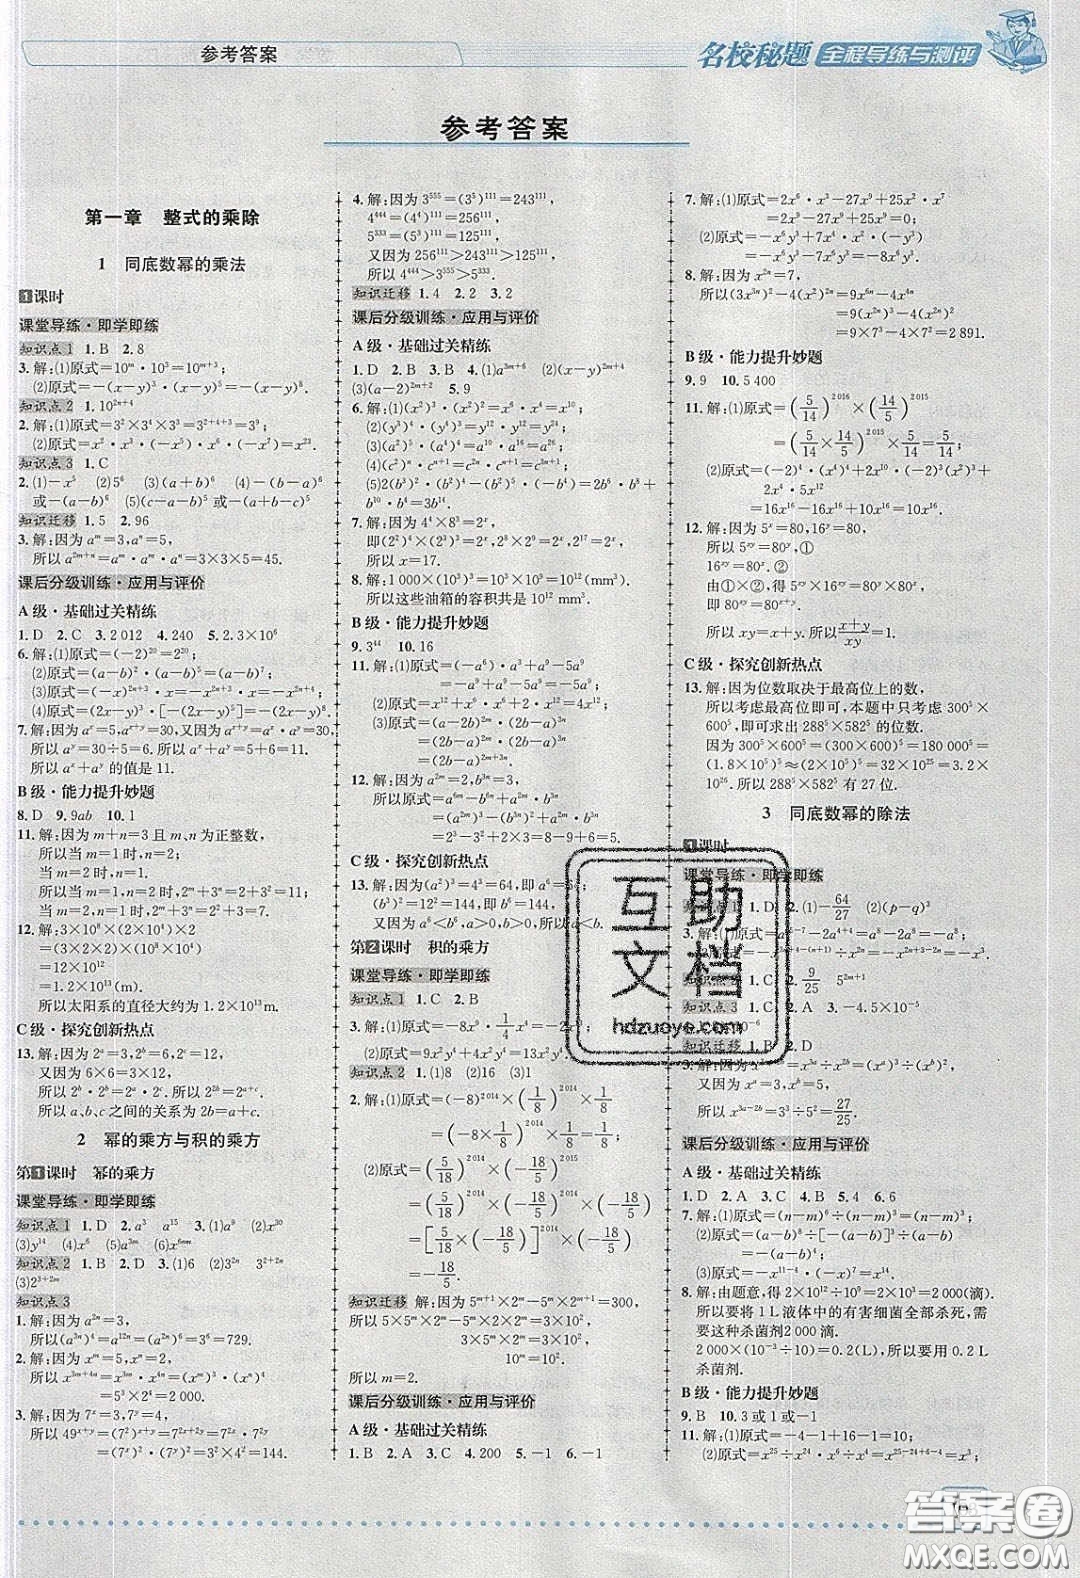 参考答案
名校秘题 全程导练与测评
参考答案
第一章 整式的乘除
1 同底数幂的乘法
1课时
课堂导练·即学即练
知识点1 1.B 2.8
3.解:(1)原式=10ᵐ·10⁵=10ᵐ⁺⁵;
(2)原式=-(x-y)³·(x-y)⁵=-(x-y)⁸.
知识点2 1.10²ⁿ⁺⁴
2.解:(1)原式=3²×3⁴×3³=3²⁺⁴⁺³=3⁹;
知识点3 1.C
2.(1)-x⁵ (2)5⁶ (3)(a+b)⁶ (4)-(b-a)⁶
或-(a-b)⁶ (5)(c-a-b)⁵或-(a+b-c)⁵
知识迁移 1.5 2.96
3.解:因为aᵐ=3,aⁿ=5,
所以a²ᵐ⁺ⁿ=aᵐ·aᵐ·aⁿ=3×3×5=45.
课后分级训练·应用与评价
A级·基础过关精练
1.D 2.C 3.2 012 4.240 5.2.3×10⁶
6.解:(1)原式=(-2)²⁰=2²⁰;
(2)原式=(a-b)²·(a-b)⁵=(a-b)⁷;
(3)原式=(-x)²ⁿ⁺³·x=-x²ⁿ⁺³·x=-x²ⁿ⁺⁴;
(4)原式=(2x-y)³·[-(2x-y)⁵]=-(2x-y)⁸.
7.解:因为aˣ=5,aˣ⁺ʸ=30,又因为aˣ⁺ʸ=aˣ·aʸ=30,
所以aʸ=30÷5=6.所以aˣ+aʸ=5+6=11.
所以aˣ+aʸ的值是11.
B级·能力提升妙题
8.D 9.9ab 10.1
11.解:因为m+n=3且m、n为正整数,
所以当m=1时,n=2;
当m=2时,n=1.
所以当m=1,n=2时,
当m=2,n=1时,
12.解:3×10⁸×(2×10⁴)×2
=(3×2×2)×(10⁸×10⁴)
=12×10¹²
=1.2×10¹³(m).
所以太阳系的直径大约为1.2×10¹³m.
C级·探究创新热点
13.解:因为2ᵃ=3,2ᵇ=6,2ᶜ=12,
又因为6×6=3×12,
所以2ᵇ·2ᵇ=2ᵃ·2ᶜ.所以2²ᵇ=2ᵃ⁺ᶜ.
所以a、b、c之间的关系为2b=a+c.
2 幂的乘方与积的乘方
第1课时 幂的乘方
课堂导练·即学即练
知识点1 1.D 2.a³ a¹⁵ 3.(1)a⁹ (2)x³⁰
(3)y¹⁴ (4)x⁶ (5)a³ᵐ (6)x⁶ᵐⁿ
知识点2 1.D 2.D 3.(1)6 (2)3²ⁿ 3²⁺ⁿ
(3)2³⁺²ᵐ
知识点3
1.解:因为a⁴ⁿ=3,
所以(a³ⁿ)⁴=a¹²ⁿ=(a⁴ⁿ)³=3⁶=729.
2.解:因为xᵐ=5,xⁿ=2,
所以x³ᵐ⁺⁴ⁿ=x³ᵐ·x⁴ⁿ=(xᵐ)³·(xⁿ)⁴
=5³×2⁴=2 000.
3.解:因为7ˣ=3,7ʸ=4,
所以49ˣ⁺ʸ=(7²)ˣ⁺ʸ=7²ˣ⁺²ʸ=7²ˣ·7²ʸ
=(7ˣ)²·(7ʸ)²=3²×4²=144.
4.解:因为3⁵⁵⁵=(3⁵)¹¹¹=243¹¹¹,
4⁴⁴⁴=(4⁴)¹¹¹=256¹¹¹,
5³³³=(5³)¹¹¹=125¹¹¹,
又因为256¹¹¹>243¹¹¹>125¹¹¹,
所以4⁴⁴⁴>3⁵⁵⁵>5³³³.
知识迁移 1.4 2.2 3.2
课后分级训练·应用与评价
A级·基础过关精练
1.D 2.B 3.B 4.(1)a³ᵐ⁺⁶ (2)(x-y)²ᵐ⁺⁴
(3)(a-2b)²ᵐ⁺² 5.9
6.解:(1)(x²)³·(x²)²=x⁶·x⁴=x¹⁰;
(2)(y³)⁴·(y⁴)³=y¹²·y¹²=y²⁴;
(3)(a²)⁵·(a⁴)⁴=a¹⁰·a¹⁶=a²⁶;
(5)2(b²)³·(b²)+(-b²)⁵·(-b⁴)=2b⁶·b⁸+
b¹⁰·b⁴=2b¹⁴+b¹⁴=3b¹⁴.
7.解:因为4⁴×8³=2ˣ,
即(2²)⁴×(2³)³=2ˣ,2⁸×2⁹=2ˣ,2¹⁷=2ˣ,
所以x=17.
8.解:1 000×(10³)³=10³×10⁹=10¹²(mm³).
所以这些油箱的容积共是10¹² mm³.
B级·能力提升妙题
9.3⁴⁴ 10.16
11.解:(1)原式=(-a⁶)·a³+a⁹-5a⁹
=-a⁹+a⁹-5a⁹=-5a⁹;
(3)原式=(a-2b)²ᵐ·(2b-a)³
=(2b-a)²ᵐ·(2b-a)³
=(2b-a)²ᵐ⁺³.
12.解:因为a²ᵐ=2,b³ⁿ=3,
所以原式=a⁶ᵐ-b⁶ⁿ+a²ᵐ·b³ⁿ
=(a²ᵐ)³-(b³ⁿ)²+a²ᵐ·b³ⁿ
=2³-3²+2×3=8-9+6=5.
C级·探究创新热点
13.解:因为(a²)³=4³=64,即a⁶=64;
(b³)²=12²=144,即b⁶=144,
又因为a⁶<b⁶,a>0,b>0,所以a<b.
第2课时 积的乘方
课堂导练·即学即练
知识点1 1.C 2.B
(2)原式=9x²y⁴+4x²y⁴=13x²y⁴.
知识点2 1.(1)8 (2)16 (3)1
2.解:(1)原式=(-8)²⁰¹⁴×(1/8)²⁰¹⁴×1/8
=(-8×1/8)²⁰¹⁴×1/8=1/8;
(2)原式=(5/18)²⁰¹⁴×(-18/5)²⁰¹⁵
=(5/18)²⁰¹⁴×(-18/5)²⁰¹⁴×(-18/5)
=[5/18×(-18/5)]²⁰¹⁴×(-18/5)
=-18/5.
知识迁移 解:5ᵐ⁺¹×2ᵐ-5ᵐ×2ᵐ⁺¹=300,
所以5×5ᵐ×2ᵐ-2×5ᵐ×2ᵐ=3×10²,
3×5ᵐ×2ᵐ=3×10²,
10ᵐ=10².
所以m=2.
课后分级训练·应用与评价
A级·基础过关精练
1.B 2.A 3.C 4.200 5.-1 6.-1
7.解:(1)原式=2x⁶·x³-27x⁹+25x²·x⁷
=2x⁹-27x⁹+25x⁹=0;
(2)原式=-x⁶y³+7x⁴·x²·(-y³)
=-x⁶y³-7x⁶y³=-8x⁶y³.
8.解:因为x²ⁿ=7,
所以(3x³ⁿ)²-4(x²)²ⁿ=9x⁶ⁿ-4x⁴ⁿ
=9(x²ⁿ)³-4(x²ⁿ)²
=9×7³-4×7²=2 891.
B级·能力提升妙题
9.9 10.5 400
11.解:(1)原式=(5/14)²⁰¹⁶×(14/5)²⁰¹⁵
=(5/14×14/5)²⁰¹⁵×5/14=5/14;
(2)原式=(-2)⁴·(x⁴)⁴-(-2)²·(x⁸)²+
2x⁴·x¹²
=16x¹⁶-4x¹⁶+2x¹⁶-4x¹⁶=10x¹⁶.
12.解:因为5ˣ=80,16ʸ=80,
所以5ˣʸ=80ʸ,①
16ˣʸ=80ˣ.②
由①×②,得5ˣʸ×16ˣʸ=80ʸ×80ˣ.
即80ˣʸ=80ˣ⁺ʸ,
所以xy=x+y.所以(x+y)/xy=1.
C级·探究创新热点
13.解:因为位数取决于最高位上的数,
所以考虑最高位即可,本题中只考虑300⁵×
600⁵,即可求出288⁵×582⁵的位数.
因为300⁵×600⁵=(300×600)⁵=180 000⁵=
(1.8×10⁵)⁵≈(2×10⁵)⁵=32×10²⁵=3.2×
10²⁶.所以288⁵×582⁵有27位.
3 同底数幂的除法
1课时
课堂导练·即学即练
知识点1 1.D 2.(1)-64/27 (2)(p-q)³
3.解:(1)原式=a⁸-2a⁴⁺⁴=a⁸-2a⁸=-a⁸;
1.C 2.9/25 5²ᵐ⁺¹
知识点3 1.C 2.A 3.-4.5×10⁻⁵
知识迁移 1.B 2.D
又因为xᵃ=3,
所以x³ᵃ⁻²ᵇ=3³÷5²=27/25.
课后分级训练·应用与评价
A级·基础过关精练
1.D 2.A 3.C 4.D 5.4 6.6
7.解:(1)原式=(n-m)⁶÷(n-m)³=(n-m)³;
(2)原式=(a-b)⁸÷[-(a-b)³]÷(a-b)²
=-(a-b)³;
8.解:由题意,得2×10¹²÷10⁹=2×10³=2000(滴).
所以要将1 L液体中的有害细菌全部杀死,需
要这种杀菌剂2 000滴.
2 000×(10⁻³÷10)=0.2(L),所以要用0.2 L
杀菌剂.
B级·能力提升妙题
9.B 10.3或1或-1
11.解:(1)原式=-4-1+16-1=10;
(2)原式=x²⁵÷x²⁴·x⁶·x⁻⁴=x²⁵⁻²⁴⁺⁶⁻⁴=x³.
互助文档
hdzuoye.com
答案圈
MXQE.COM